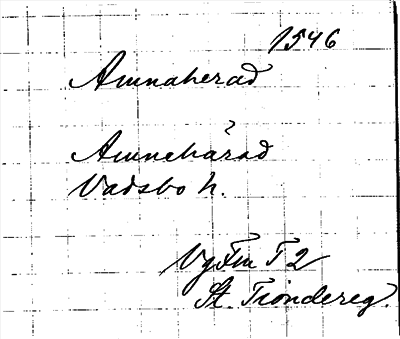 1546
Amnaherad
?
Amnehärad
Vadsbo h.
Vg Fm T 2
St. Tiondereg.